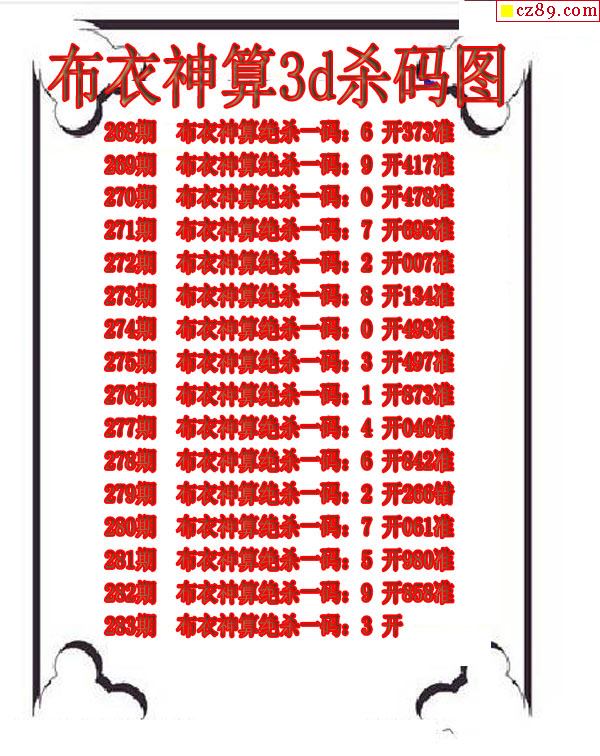 cz89.com
布衣神算3d杀码图
268期 布衣神算绝杀一码：6 开373准
269期 布衣神算绝杀一码：9 开417准
270期 布衣神算绝杀一码：0 开478准
271期 布衣神算绝杀一码：7 开695准
272期 布衣神算绝杀一码：2 开007准
273期 布衣神算绝杀一码：8 开134准
274期 布衣神算绝杀一码：0 开493准
275期 布衣神算绝杀一码：3 开497准
276期 布衣神算绝杀一码：1 开673准
277期 布衣神算绝杀一码：4 开046错
278期 布衣神算绝杀一码：6 开842准
279期 布衣神算绝杀一码：2 开266错
280期 布衣神算绝杀一码：7 开061准
281期 布衣神算绝杀一码：5 开980准
282期 布衣神算绝杀一码：9 开658准
283期 布衣神算绝杀一码：3 开